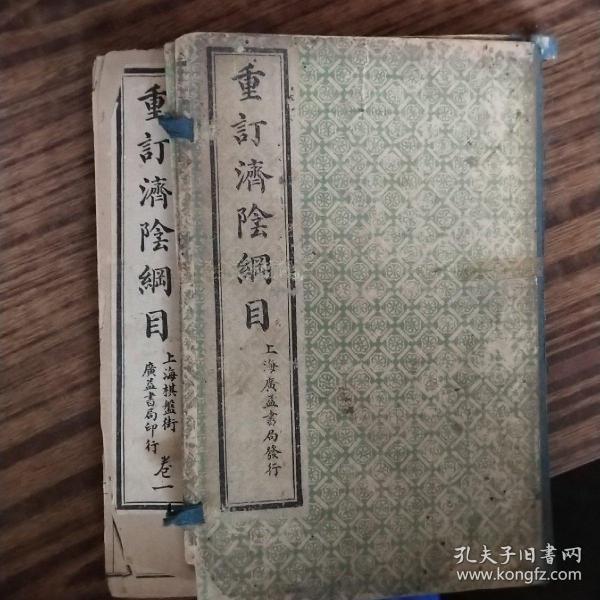 重訂濟陰綱目
上海棋盤街
廣益書局印行
卷一
重訂濟陰綱目
上海廣益書局發行
孔夫子旧书网
www.kongfz.com